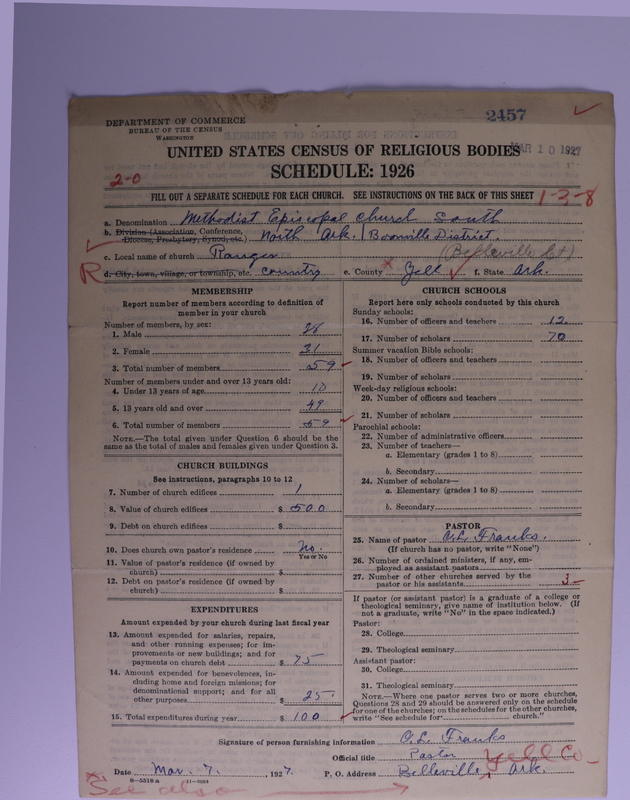 2457
DEPARTMENT OF COMMERCE
BUREAU OF THE CENSUS
WASHINGTON
MAR 10 1927
UNITED STATES CENSUS OF RELIGIOUS BODIES
SCHEDULE: 1926
2-0
FILL OUT A SEPARATE SCHEDULE FOR EACH CHURCH. SEE INSTRUCTIONS ON THE BACK OF THIS SHEET
1-3-8
a. Denomination Methodist Episcopal Church South
b. Division (Association, Conference, Diocese, Presbytery, Synod, etc.) North Ark. / Boonville District.
c. Local name of church Ranger (Belleville Ct)
R d. City, town, village, or township, etc. country e. County Yell f. State Ark.
MEMBERSHIP
Report number of members according to definition of
member in your church
Number of members, by sex:
1. Male 28
2. Female 31
3. Total number of members 59
Number of members under and over 13 years old:
4. Under 13 years of age 10
5. 13 years old and over 49
6. Total number of members 59
NOTE.—The total given under Question 6 should be
same as the total of males and females given under Question 3.
CHURCH BUILDINGS
See instructions, paragraphs 10 to 12
7. Number of church edifices 1
8. Value of church edifices $ 500
9. Debt on church edifices $
10. Does church own pastor's residence No.
Yes or No
11. Value of pastor's residence (if owned by
church) $
12. Debt on pastor's residence (if owned by
church) $
EXPENDITURES
Amount expended by your church during last fiscal year
13. Amount expended for salaries, repairs,
and other running expenses; for im-
provements or new buildings; and for
payments on church debt $ 75
14. Amount expended for benevolences, in-
cluding home and foreign missions; for
denominational support; and for all
other purposes $ 25.
15. Total expenditures during year $ 100
CHURCH SCHOOLS
Report here only schools conducted by this church
Sunday schools:
16. Number of officers and teachers 12
17. Number of scholars 70
Summer vacation Bible schools:
18. Number of officers and teachers
19. Number of scholars
Week-day religious schools:
20. Number of officers and teachers
21. Number of scholars
Parochial schools:
22. Number of administrative officers
23. Number of teachers—
a. Elementary (grades 1 to 8)
b. Secondary
24. Number of scholars—
a. Elementary (grades 1 to 8)
b. Secondary
PASTOR
25. Name of pastor Franks.
(If church has no pastor, write "None")
26. Number of ordained ministers, if any, em-
ployed as assistant pastors
27. Number of other churches served by the
pastor or his assistants 3
If pastor (or assistant pastor) is a graduate of a college or
theological seminary, give name of institution below. (If
not a graduate, write "No" in the space indicated.)
Pastor:
28. College
29. Theological seminary
Assistant pastor:
30. College
31. Theological seminary
NOTE.—Where one pastor serves two or more churches,
Questions 28 and 29 should be answered only on the schedule
for one of the churches; on the schedules for the other churches,
write "See schedule for church."
Signature of person furnishing information Franks
Official title Pastor
Yell Co-
Date Mar. 7, 1927. P. O. Address Belleville, Ark.
8—5518a 11—9084
See also